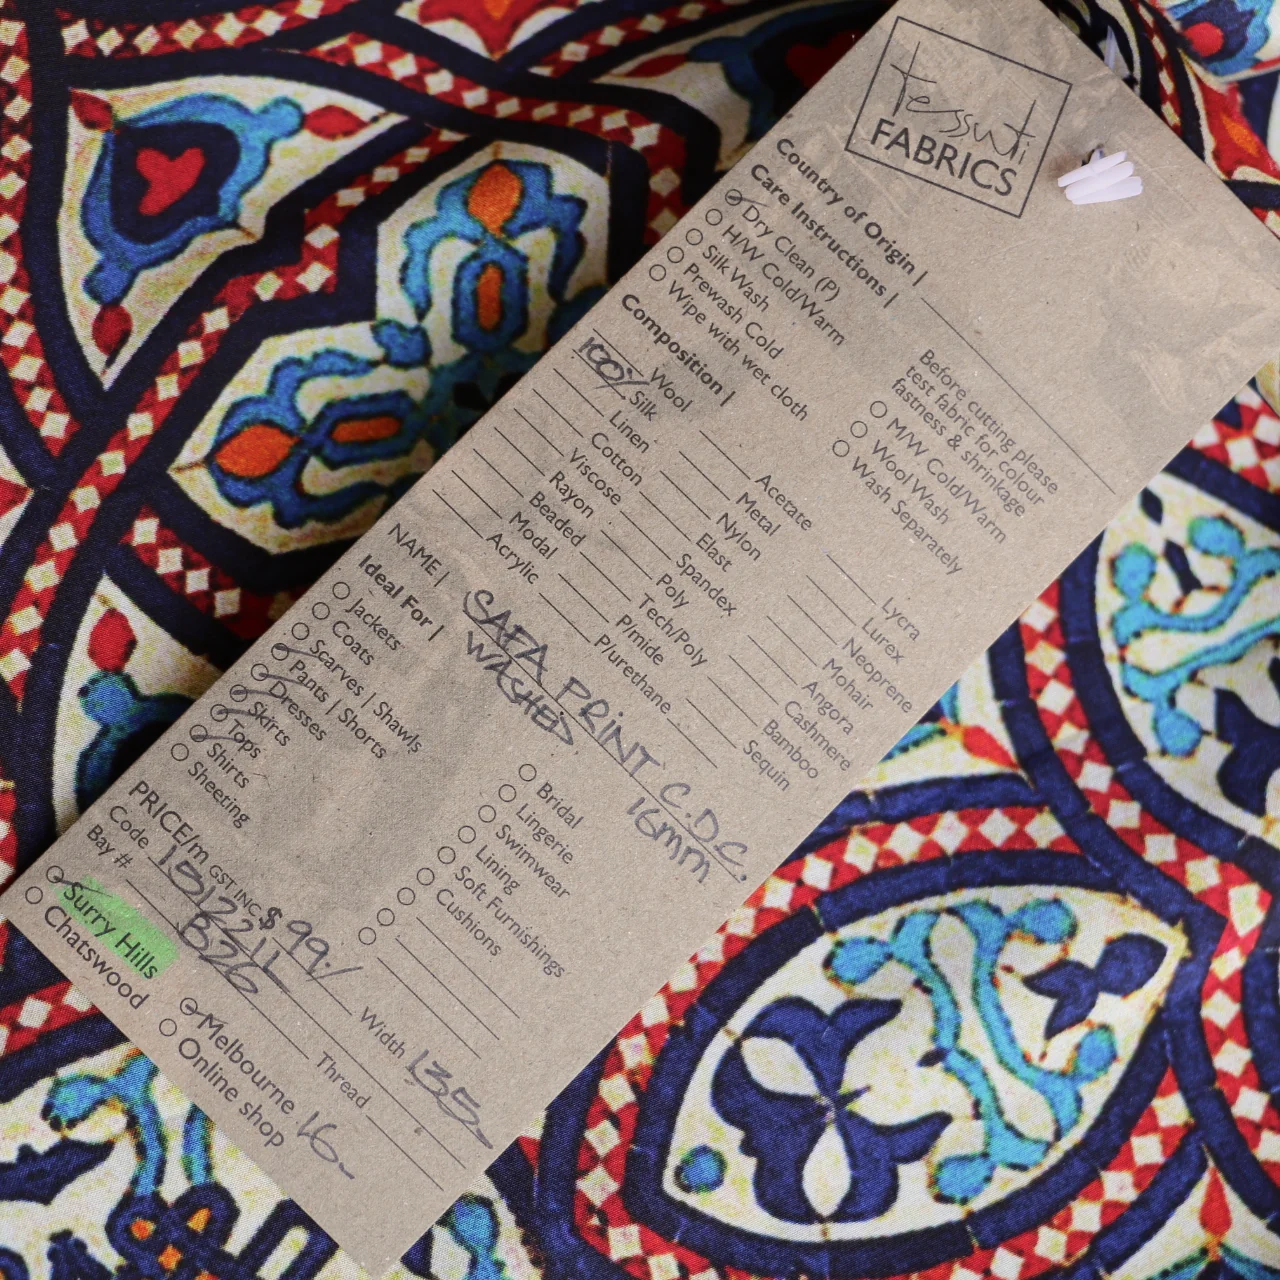 tessuti
FABRICS
Country of Origin |
Care Instructions |
Dry Clean (P)
H/W Cold/Warm
Silk Wash
Prewash Cold
Wipe with wet cloth
Before cutting please
test fabric for colour
fastness & shrinkage
M/W Cold/Warm
Wool Wash
Wash Separately
Composition |
Wool
100% Silk
Linen
Cotton
Viscose
Rayon
Beaded
Modal
Acrylic
Acetate
Metal
Nylon
Elast
Spandex
Poly
Tech/Poly
P/mide
P/urethane
Lycra
Lurex
Neoprene
Mohair
Angora
Cashmere
Bamboo
Sequin
NAME | SAFA PRINT C.D.C.
WASHED 16mm
Ideal For |
Jackets
Coats
Scarves | Shawls
Pants | Shorts
Dresses
Skirts
Tops
Shirts
Sheeting
Bridal
Lingerie
Swimwear
Lining
Soft Furnishings
Cushions
PRICE/m GST INC $ 99./ Width 135
Code 151221L Thread
Bay # B26
Surry Hills
Chatswood
Melbourne 16
Online shop